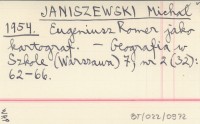 JANISZEWSKI Michał
1954. Eugeniusz Romer jako
kartograf. — Geografia w
Szkole (Warszawa) 7, nr 2 (32):
62-66.
BT/022/0972